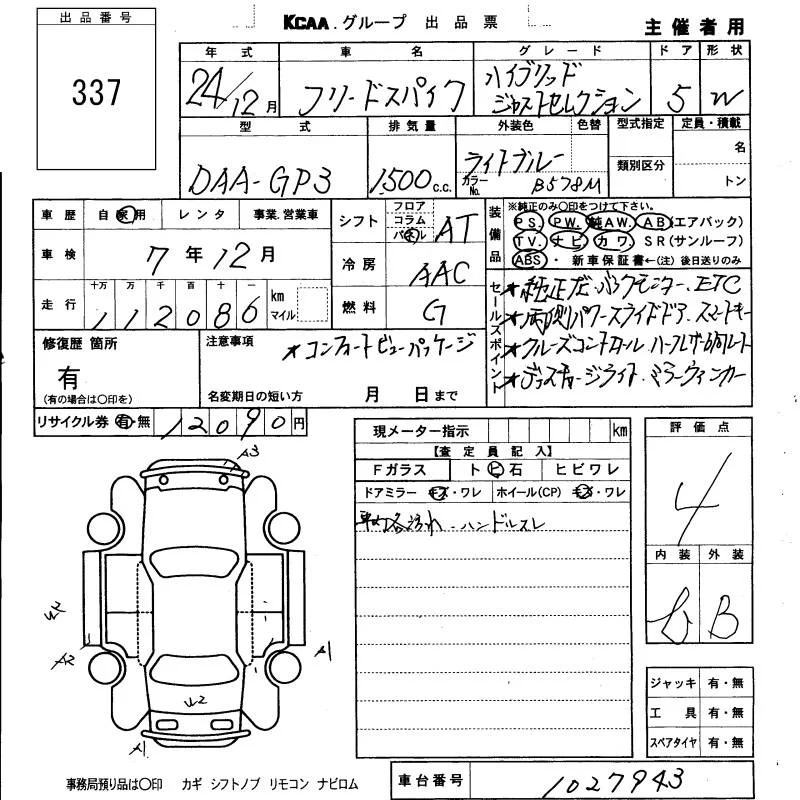 出品番号
337
KCAA.グループ 出品票
主催者用
年式 車名 グレード ドア 形状
24/12月 フリードスパイク ハイブリッド ジャストセレクション 5 W
型式 排気量 外装色 色替 型式指定 定員・積載
DAA-GP3 1500c.c. ライトブルー カラーNo. B578M 類別区分 名 トン
車歴 自家用 レンタ 事業、営業車
車検 7年12月
走行 十万 万 千 百 十 一
112086 km マイル
シフト フロア コラム パネル AT
冷房 AAC
燃料 G
装備品 ※純正のみ〇印をつけて下さい。
PS. PW. 純AW. AB(エアバック)
TV. ナビ カワ. SR(サンルーフ)
ABS・新車保証書←(注)後日送りのみ
セールスポイント
★純正ナビ.バックモニター.ETC
★両側パワースライドドア.スマートキー
★クルーズコントロール.ハーフレザー調シート
★ディスチャージライト.ミラーウィンカー
修復歴 箇所
有
(有の場合は〇印を)
注意事項
★コンフォートビューパッケージ
名変期日の短い方 月 日まで
リサイクル券 有・無 12090円
現メーター指示 km
【査定員記入】
Fガラス トビ石 ヒビワレ
ドアミラー キズ・ワレ ホイール(CP) キズ・ワレ
車内各汚れ.ハンドルスレ
評価点
4
内装 外装
b B
A3
W2
A2
A1
W2
A1
ジャッキ 有・無
工具 有・無
スペアタイヤ 有・無
事務局預り品は〇印 カギ シフトノブ リモコン ナビロム
車台番号 1027943